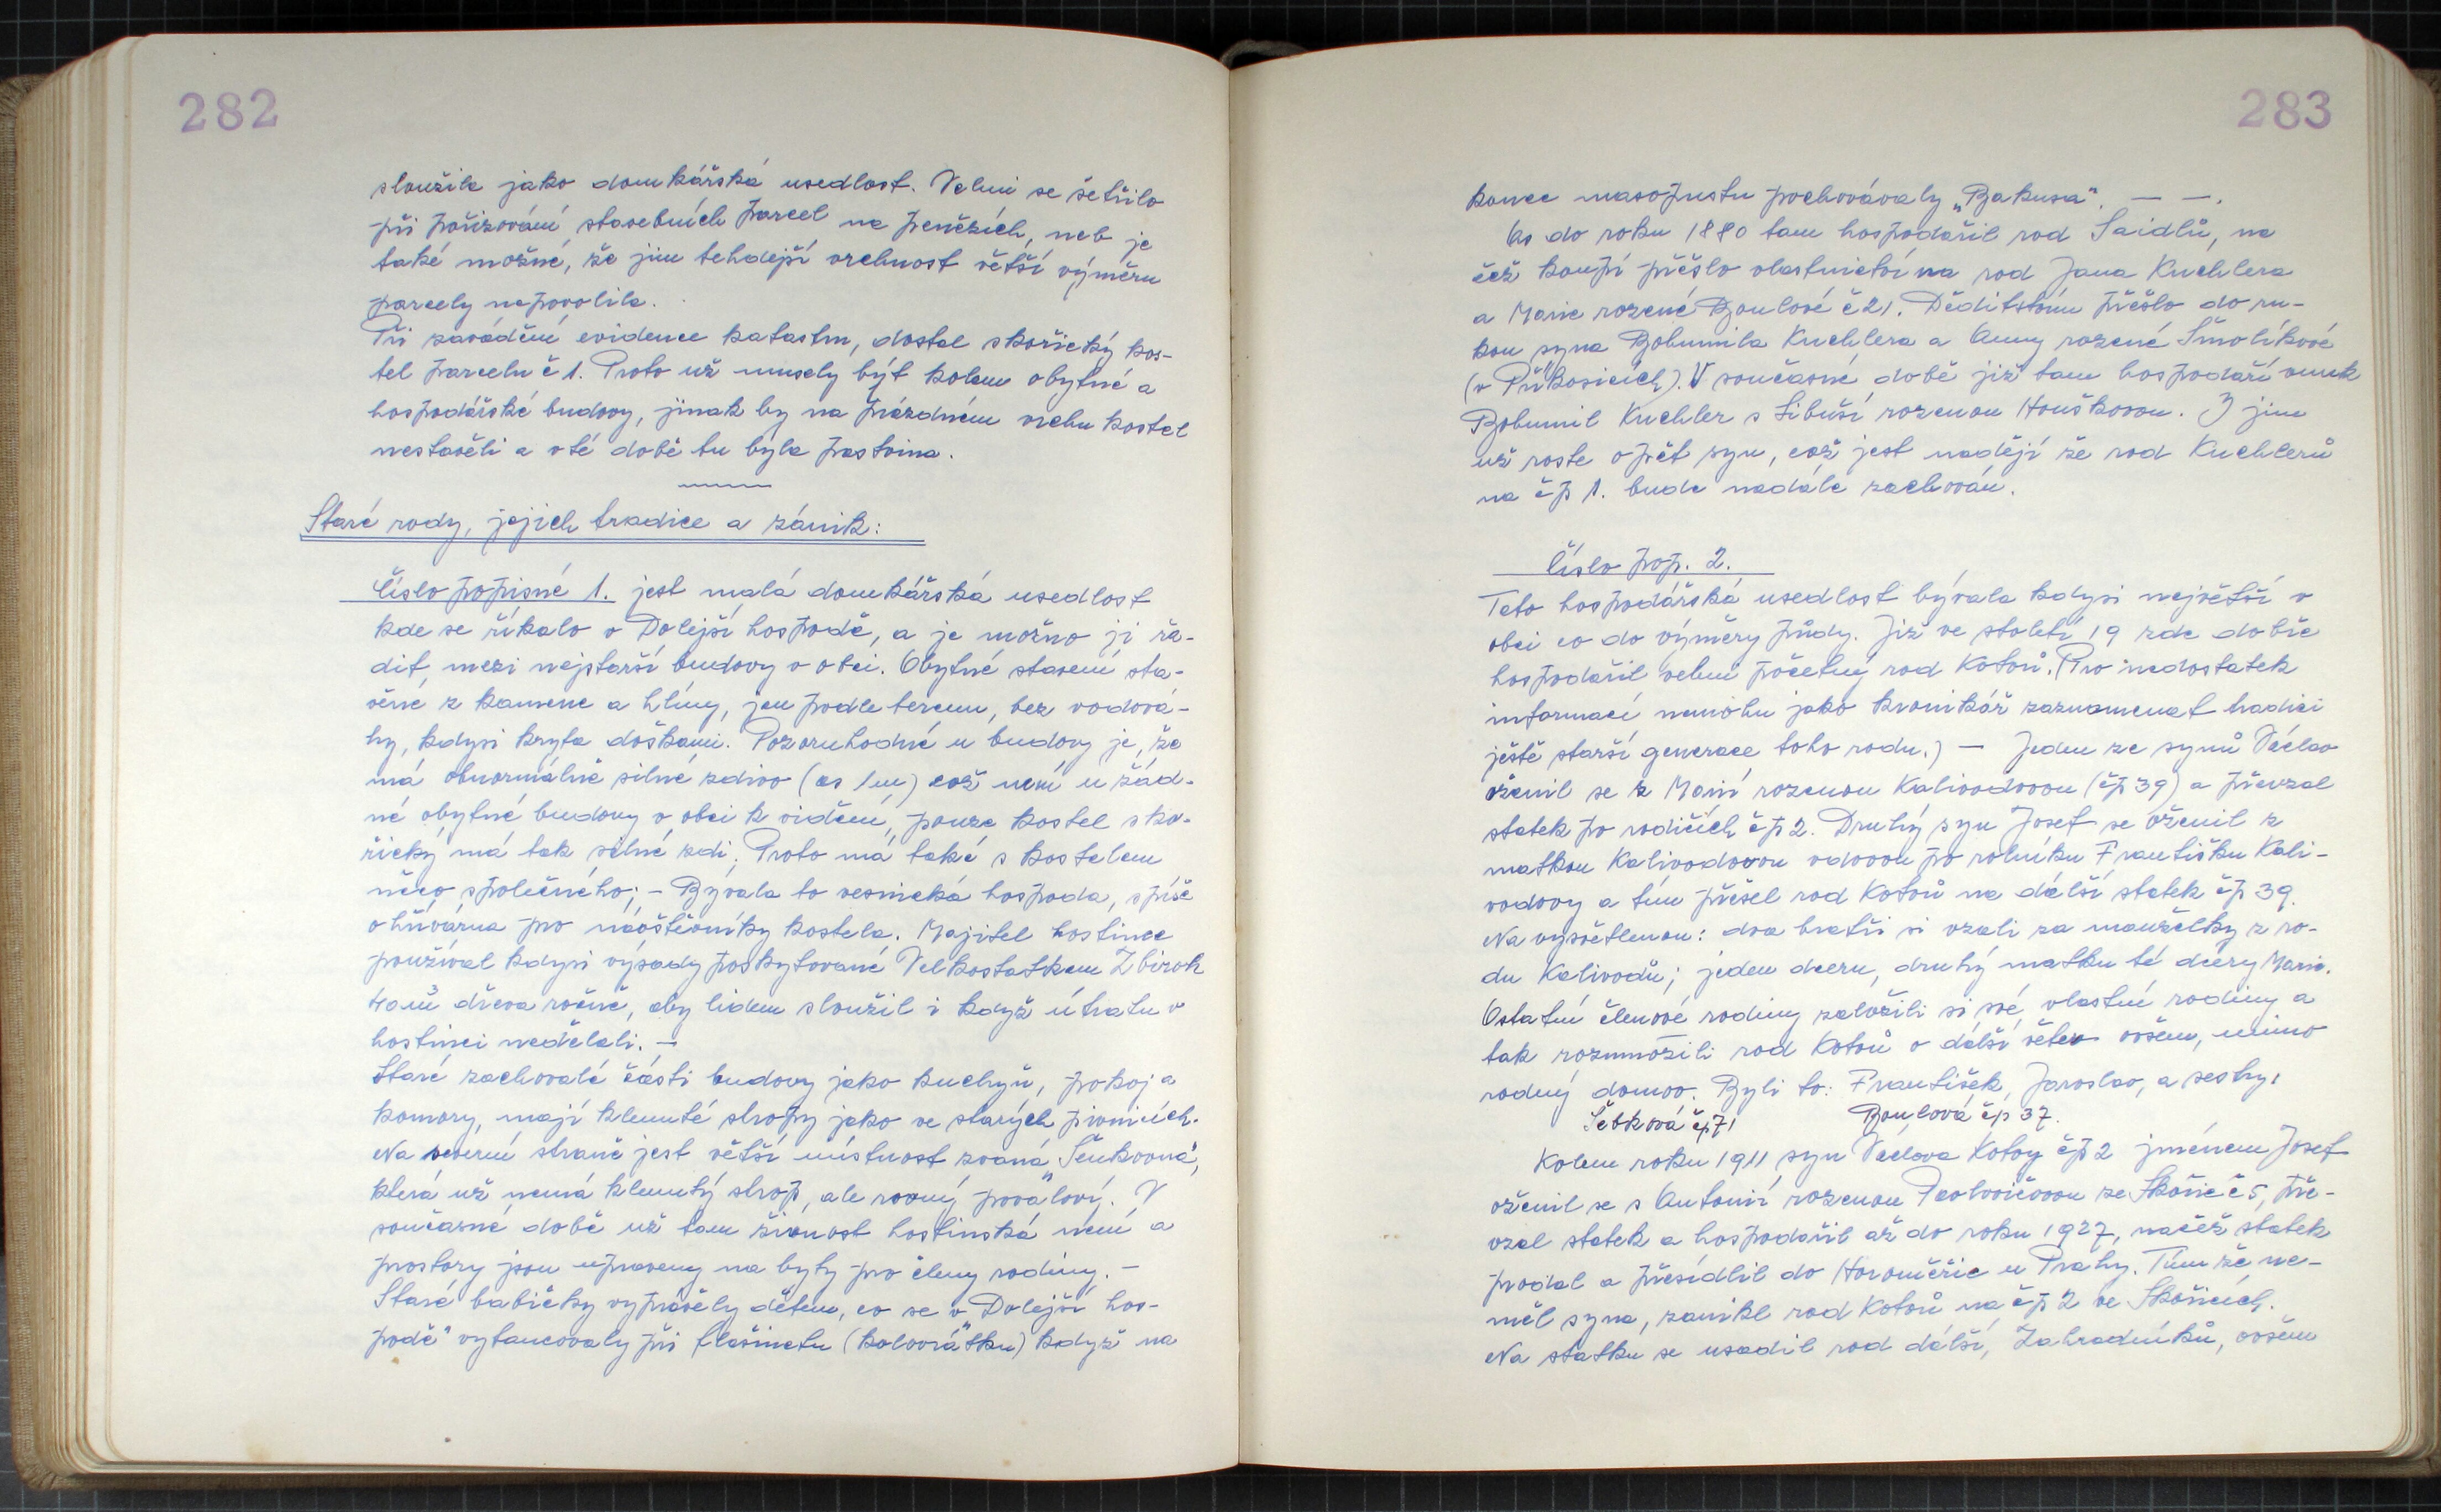 282
sloužila jako domkářská usedlost. Velmi se šetřilo
při pořizování stavebních parcel na penězích, neb je
také možné, že jim tehdejší vrchnost větší výměru
parcely nepovolila.
Při zavádění evidence katastru, dostal skořický kos-
tel parcelu č 1. Proto už musely být kolem obytné a
hospodářské budovy, jinak by na prázdném vrchu kostel
nestavěli a v té době tu byla pastvina.
Staré rody, jejich tradice a zánik:
Číslo popisné 1. jest malá domkářská usedlost
kde se říkalo v Dolejší hospodě, a je možno ji řa-
dit, mezi nejstarší budovy v obci. Obytné stavení sta-
věné z kamene a hlíny, jen podle terenu, bez vodová-
hy, kdysi kryta doškami. Pozoruhodné u budovy je, že
má obnormálně silné zdivo (as 1m) což není u žád-
né obytné budovy v obci k vidění, pouze kostel sko-
řický má tak silné zdi. Proto má také s kostelem
něco společného; – Bývala to vesnická hospoda, spíše
ohřívárna pro návštěvníky kostela. Majitel hostince
používal kdysi výsady poskytované Velkostatkem Zbiroh
4 dřeva ročně, aby lidem sloužil i když útratu v
hostinci nedělali. –
Staré zachovalé části budovy jako kuchyň, pokoj a
komory, mají klenuté stropy jako ve starých pivnicích.
Na severní straně jest větší místnost zvaná „Šenkovna",
která už nemá klenutý strop, ale rovný „pováľový. V
současné době už tam živnost hostinská není a
prostory jsou upraveny na byty pro členy rodiny. –
Staré babičky vyprávěly dětem, co se v „Dolejší hos-
podě" vytancovaly při flašinetu (kolovrátku) když na
283
konec masopustu pochovávaly „Bakusa". — —.
As do roku 1880 tam hospodařil rod Saidlů, na
čež koupí přešlo vlastnictví na rod Jana Kuchlera
a Marie rozené Boulové č 21. Dědictvím přešlo do ru-
kou syna Bohumila Kuchlera a Anny rozené Šmolíkové
(v Příkosicích). V současné době již tam hospodaří vnuk
Bohumil Kuchler s Libuší rozenou Houškovou. I jim
už roste opět syn, což jest nadějí že rod Kuchlerů
na čp 1. bude nadále zachován.
Číslo pop. 2.
Tato hospodářská usedlost bývala kdysi největší v
obci co do výměry půdy. Již ve století 19 zde dobře
hospodařil velmi početný rod Kotoů. (Pro nedostatek
informací nemohu jako kronikář zaznamenat tradici
ještě starší generace toho rodu.) — Jeden ze synů Václav
oženil se z Marií rozenou Kalivodovou (čp 39) a převzal
statek po rodičích čp 2. Druhý syn Josef se oženil z
matkou Kalivodovou vdovou po rolníku Františku Kali-
vodovy a tím přešel rod Kotoů na další statek čp 39.
Na vysvětlenou: dva bratři si vzali za manželky z ro-
du Kalivodů; jeden dceru, druhý matku té dcery Marie.
Ostatní členové rodiny založili si své, vlastní rodiny a
tak rozmnožili rod Kotoů o další větev ovšem, mimo
rodný domov. Byli to: František, Jaroslav, a sestry:
Šetková čp 71 Boulová čp 37.
Kolem roku 1911 syn Václava Kotoy čp 2 jménem Josef
oženil se s Antonií rozenou ze Skořic č 5, pře-
vzal statek a hospodařil až do roku 1927, načež statek
prodal a přesídlil do Horoměřic u Prahy. Tím že ne-
měl syna, zanikl rod Kotoů na čp 2 ve Skořicích.
Na statku se usadil rod další, Zahradníků, ovšem